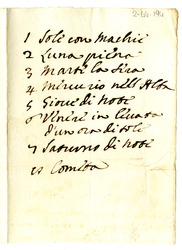 2-64-194
1 Sole con machie
2 Luna piena
3 Marte la sera
4 mircurio nell Alba
5 Giove di note
6 Venere in levata
d'un ora di sole
7 Saturno di note
Cometa